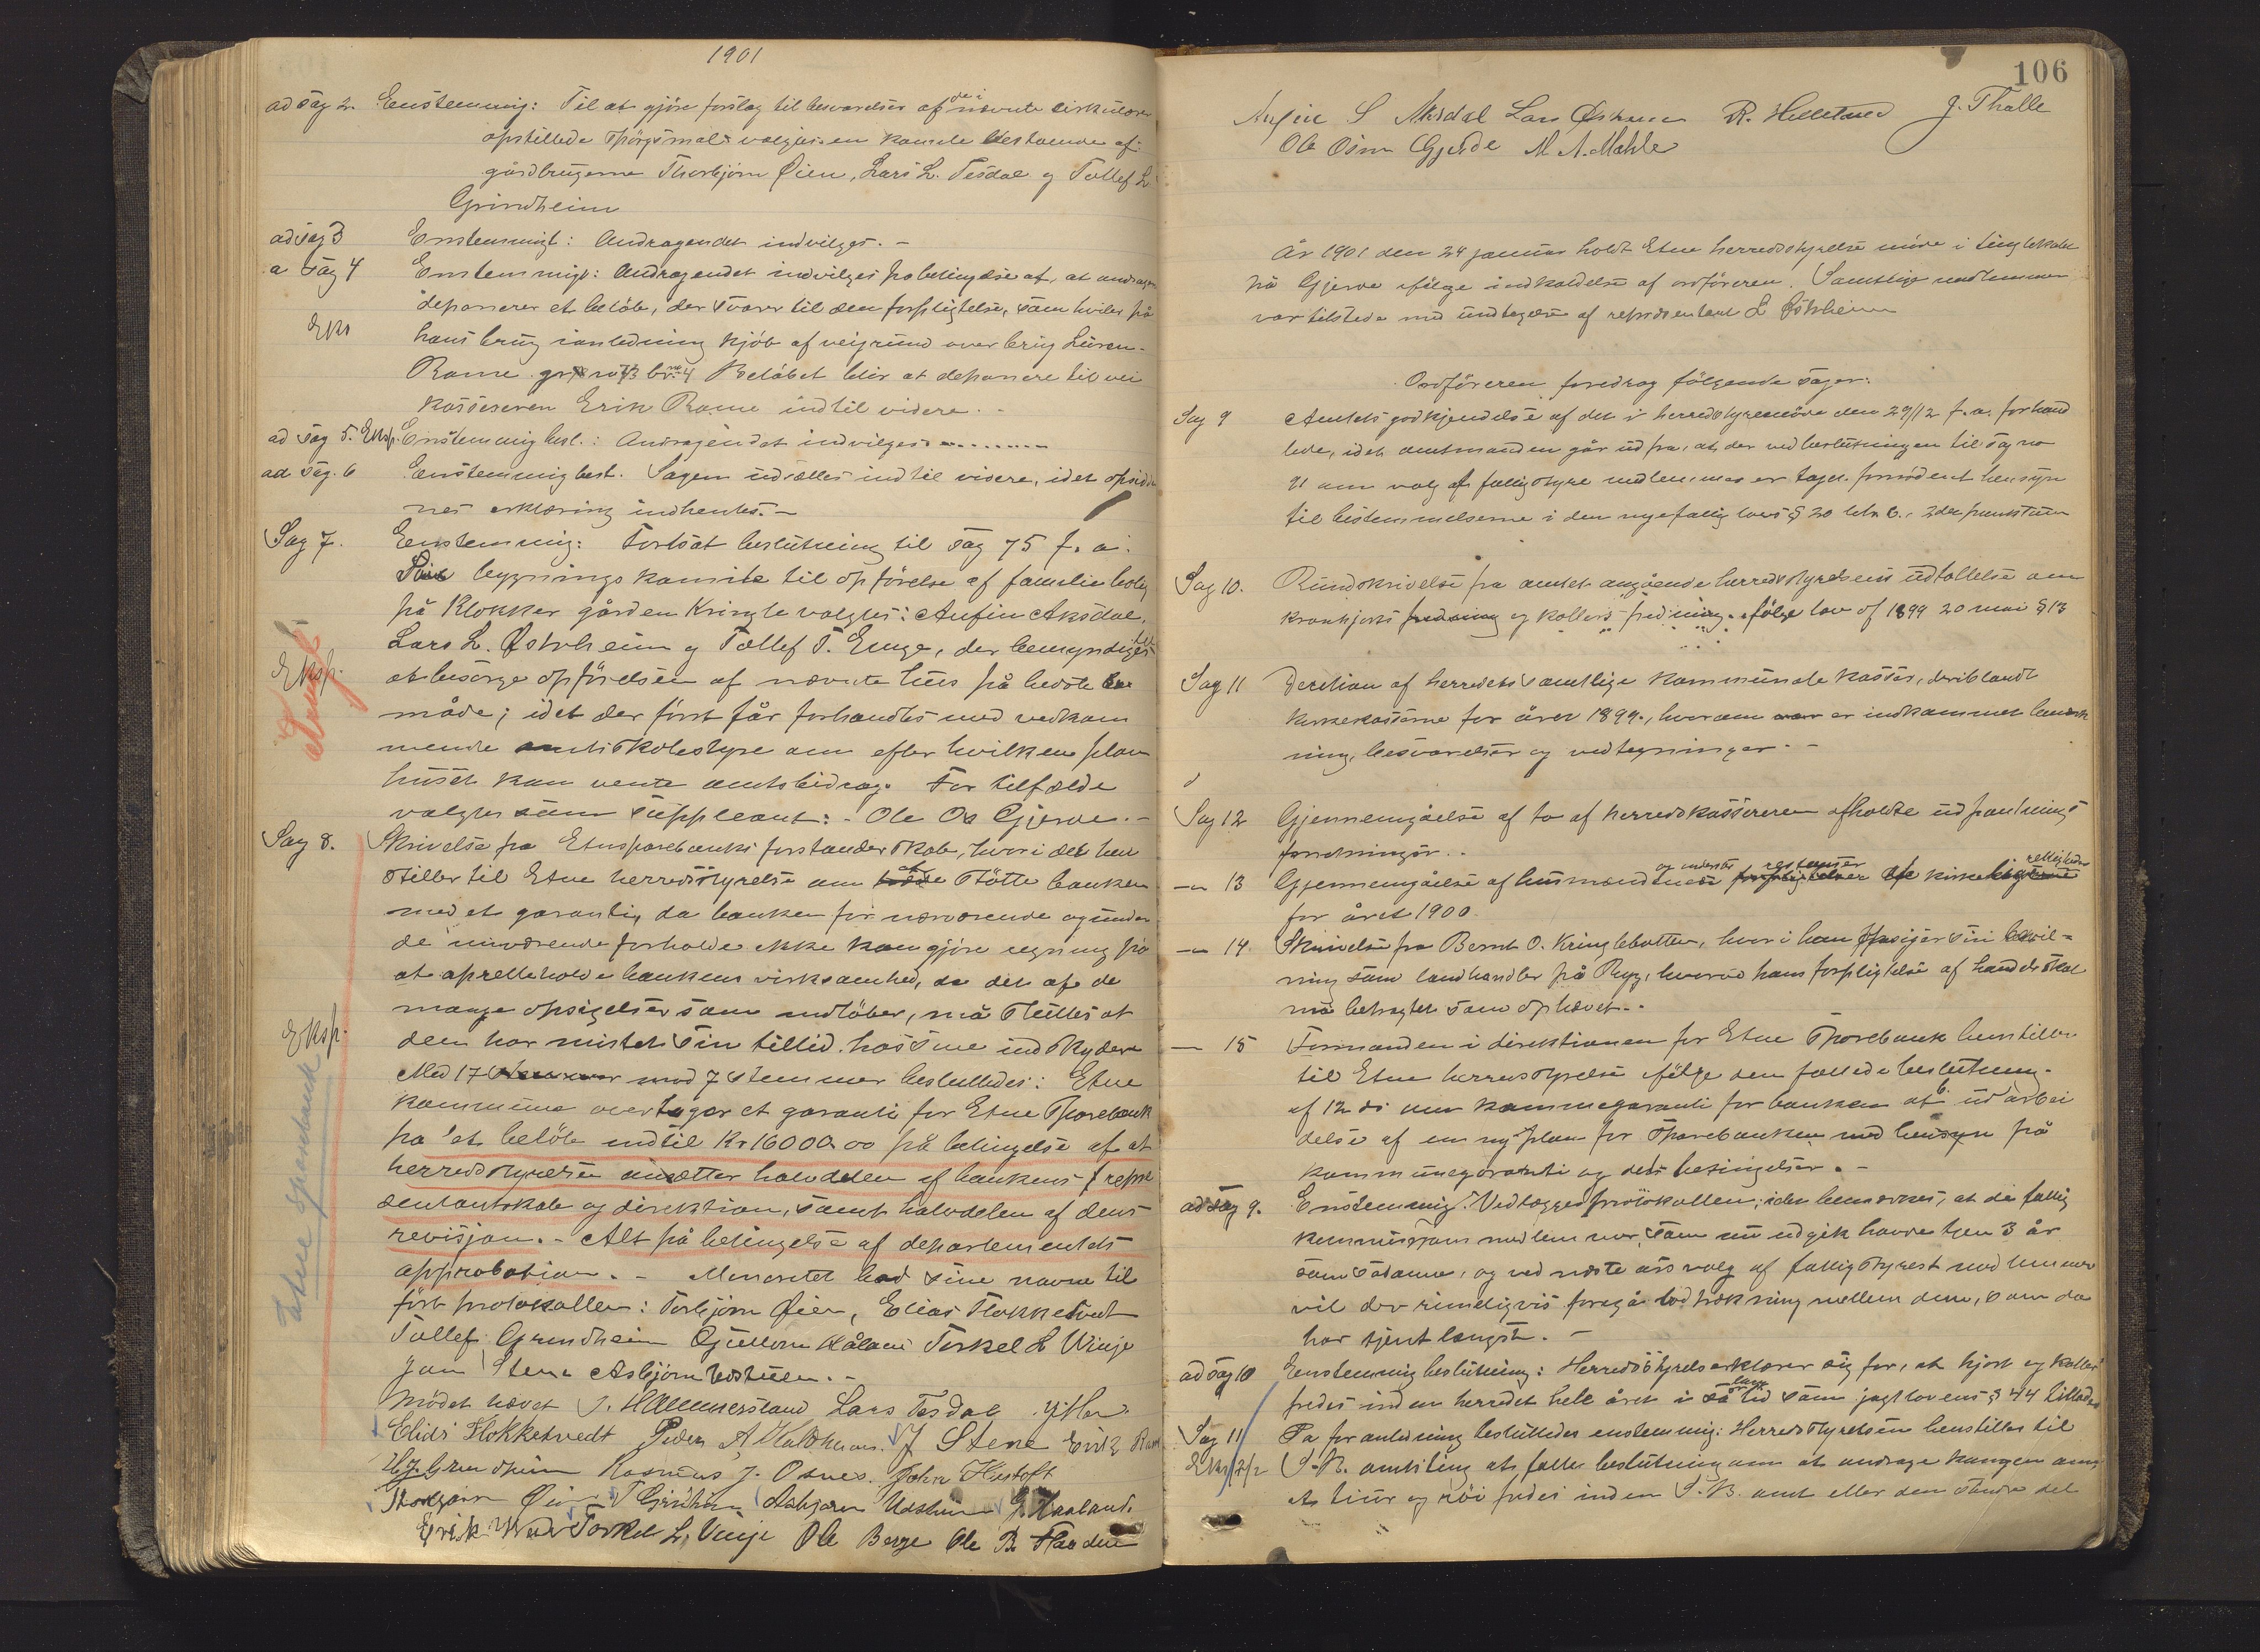 1901
ad sag 2. Enstemmig: Til at gjøre forslag til besvarelser af de i nævnte cirkulærer
opstillede spörgsmål valgtes en komite bestaaende af:
gårdbrugerne Thorbjörn Øien, Lars L. Tesdal og Tollef L.
Grindheim
ad sag 3 Enstemmigt: Andragendet indvilges. -
a sag 4 Enstemmigt: Andragendet indvilges på betingelse af, at
deponerer et belöb, der svarer til den forpligtelse, som hviler på
Eks hans brug i anledning kjöb af veigrund over brug
Rame br. no 4 Belöbet blir at deponere til vei
kassereren Erik Rame indtil videre. -
ad sag 5. Eksp. Enstemmig besl.: Andragendet indvilges
ad sag. 6 Eenstemmig besl. Sagen udsættes indtil videre, idet opsidder
nes erklæring indhentes. -
Sag 7. Eenstemmig: Fortsat beslutning til sag 75 f. a.
bygningskomite til opförelse af familiebolig
på Klokkergården Kringle valgtes: Anfin Aksdal,
Lars L. Østrheim og Tollef T. Enge, der bemyndiges til
Eksp. at besörge opförelsen af nævnte hus på bedste
måde; idet der först får forhandles med vedkom
mende amtsskolestyre om efter hvilken plan
huset kan vente amtsbidrag. For tilfælde
valgtes som suppleant: - Ole Os Gjerde. -
Sag 8. Skrivelse fra Etnesparebanks forstanderskab, hvori det hen
stiller til Etne herredsstyrelse om at støtte banken
med et garanti, da banken for nærværende og under
de nuværende forholde ikke kan gjöre regning på
at opretteholde bankens virksomhed, da det af de
mange opsigelser som indlöber, må sluttes at
Eksp. den har mistet sin tillid hos sine indskydere
Med 17 mod 7 stemmer besluttedes: Etne
kommune overtager et garanti for Etne Sparebank
Etne Sparebank
på et belöb indtil Kr 16000.00 på betingelse af at
herredsstyrelsen ansætter halvdelen af bankens repræ
sentantskab og direktion, samt halvdelen af dens
revisjon. - Alt på betingelse af departementets
approbation. - Menoritet bad sine navne til
fört protokollen: Torbjörn Øien, Elias Flokketvedt
Tollef Grindheim Guttorm Håland Torkel L Vinje
Jon Stene Asbjörn Udstuen. -
Mödet hævet J. Hammersland Lars Tesdal
Elias Flokketvedt Peder A J Stene
Rasmus J. Osnes. John Hustoft
Thorbjørn Øien T Grindheim Asbjørn G. Haaland.
Torkel L. Vinje Ole Berge Ole B.
106
Anfin S Aksdal Lars Østrem R. Hilletvad J. Thalle
Ole Osm Gjerde M A. Mæhle
År 1901 den 24 januar holdt Etne herredsstyrelse möde i tinglokalet
på Gjerde ifölge indkaldelse af ordföreren. Samtlige medlemmer
var tilstede med undtagelse af repræsentant L Östrheim
Ordföreren foredrog fölgende sager:
Sag 9 Amtets godkjendelse af det i herredsstyremöde den 29/12 f. a. forhand
lede, idet amtmanden går ud fra, at der ved beslutningen til sag no
91 om valg af fattigstyre medlemmer er tagen fornödent hensyn
til bestemmelserne i den nye fattiglovs § 20 litr. b. 2det punktum
Sag 10. Rundskrivelse fra amtet angående herredsstyrelsens udtallelse om
kronhjorts fredning og kollers fredning ifölge lov af 1899 20 mai § 13
Sag 11 Decition af herredets samtlige kommunale kasser, deriblandt
kirkekasserne for året 1899., hvorom er indkommet bemærk
ning, besvarelser og vedtegninger. -
Sag 12 Gjennemgåelse af to af herredskassereren afholdte udpantnings
forretninger.
— 13 Gjennemgåelse af husmænds og inderster restanser kirke rettigheder
for året 1900.
— 14. Skrivelse fra Bernt O. Kringlebotten, hvori han opsiger sin bevil-
ning som landhandler på Rygg, hvorved hans forpligtelse af handelsskat
må betragtes som ophævet.
— 15 Formanden i direktionen for Etne Sparebank henstiller
til Etne herredsstyrelse ifölge den fattede beslutning
af 12 ds om kommunegaranti for banken at b. udarbei
delse af en ny plan for Sparebanken med hensyn på
kommunegaranti og dets betingelser. -
ad sag 9. Enstemmig: Vedlægges protokollen; idet bemærkes, at de fattig
kommissions medlemmer, som nu udgik havde tjen 3 år
som sådanne, og ved næste års valg af fattigstyrest medlemmer
vil der rimeligvis foregå lodtrækning mellem dem, som da
har tjent længst. -
ad sag 10 Enstemmig beslutning: Herredsstyrelse erklærer sig for, at hjort og koller
fredes inden herredet hele året i så lang tid som jagtlovens § 44 tillader
Sag 11 Pa foranledning besluttedes enstemmig: Herredsstyrelsen henstiller til
Eksp 7/2 S. B. amtsting at fatte beslutning om at andrage kongen om
At tiur og röi fredes inden S. B. amt eller den söndre del